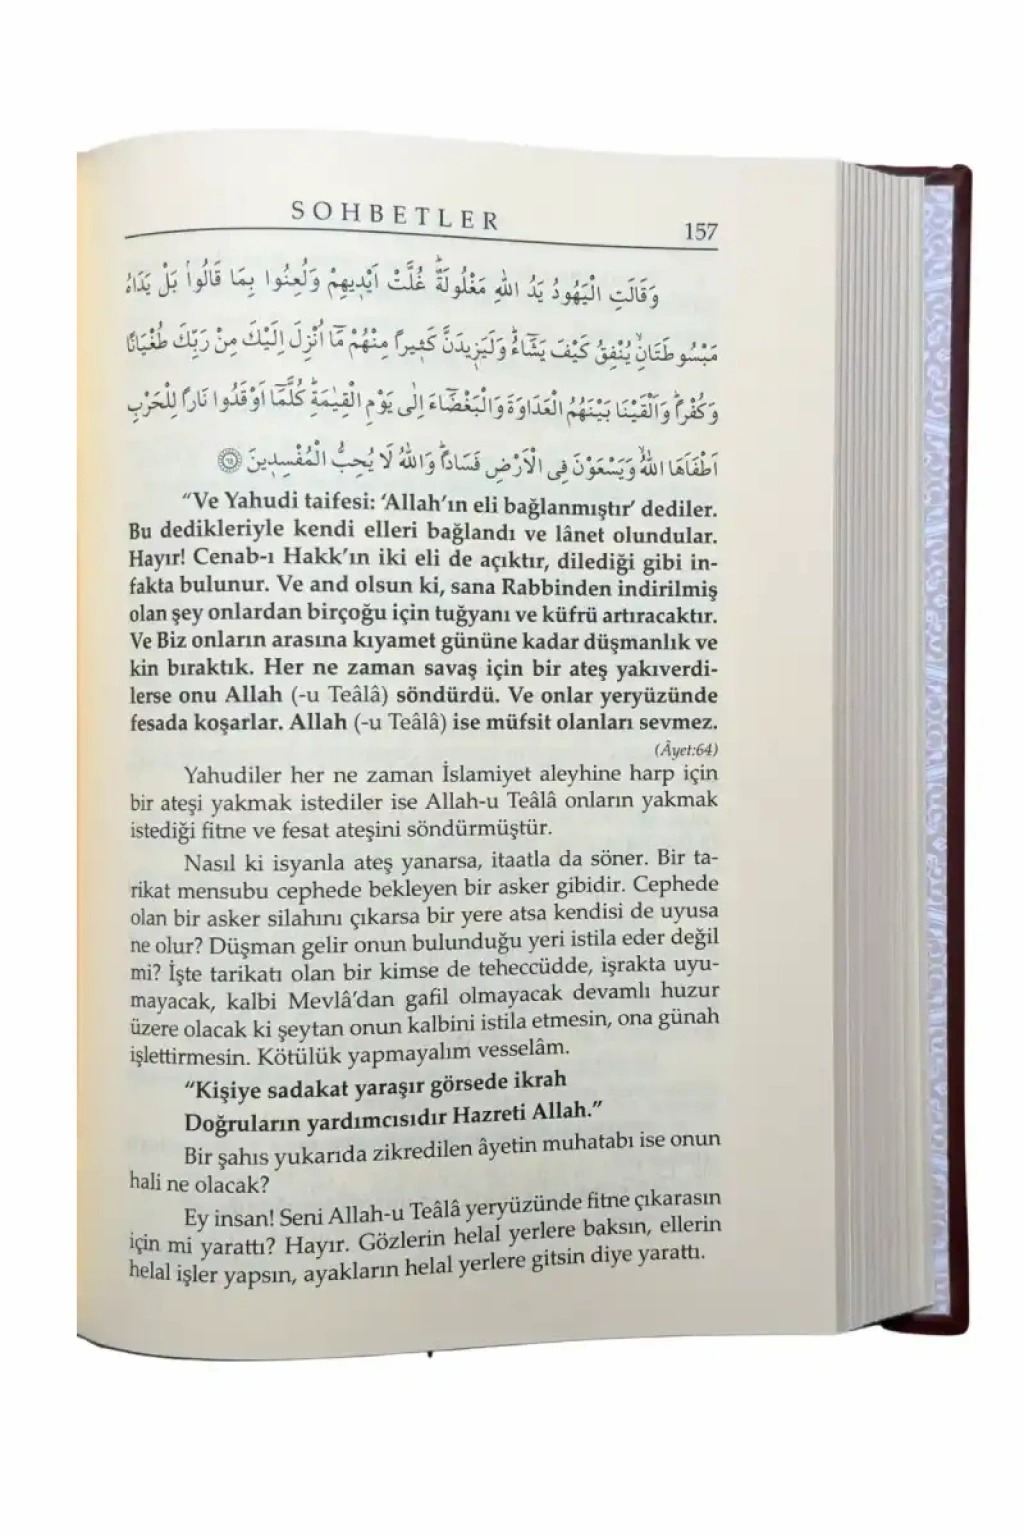 SOHBETLER
157
وَقَالَتِ الْيَهُودُ يَدُ اللّٰهِ مَغْلُولَةٌۜ غُلَّتْ اَيْدٖيهِمْ وَلُعِنُوا بِمَا قَالُواۘ بَلْ يَدَاهُ
مَبْسُوطَتَانِۙ يُنْفِقُ كَيْفَ يَشَٓاءُۜ وَلَيَزٖيدَنَّ كَثٖيراً مِنْهُمْ مَٓا اُنْزِلَ اِلَيْكَ مِنْ رَبِّكَ طُغْيَاناً
وَكُفْراًۜ وَاَلْقَيْنَا بَيْنَهُمُ الْعَدَاوَةَ وَالْبَغْضَٓاءَ اِلٰى يَوْمِ الْقِيٰمَةِۜ كُلَّمَٓا اَوْقَدُوا نَاراً لِلْحَرْبِ
اَطْفَاَهَا اللّٰهُۙ وَيَسْعَوْنَ فِى الْاَرْضِ فَسَاداًۜ وَاللّٰهُ لَا يُحِبُّ الْمُفْسِدٖينَ
“Ve Yahudi taifesi: ‘Allah’ın eli bağlanmıştır’ dediler.
Bu dedikleriyle kendi elleri bağlandı ve lânet olundular.
Hayır! Cenab-ı Hakk’ın iki eli de açıktır, dilediği gibi in-
fakta bulunur. Ve and olsun ki, sana Rabbinden indirilmiş
olan şey onlardan birçoğu için tuğyanı ve küfrü artıracaktır.
Ve Biz onların arasına kıyamet gününe kadar düşmanlık ve
kin bıraktık. Her ne zaman savaş için bir ateş yakıverdi-
lerse onu Allah (-u Teâlâ) söndürdü. Ve onlar yeryüzünde
fesada koşarlar. Allah (-u Teâlâ) ise müfsit olanları sevmez.
(Âyet:64)
Yahudiler her ne zaman İslamiyet aleyhine harp için
bir ateşi yakmak istediler ise Allah-u Teâlâ onların yakmak
istediği fitne ve fesat ateşini söndürmüştür.
Nasıl ki isyanla ateş yanarsa, itaatla da söner. Bir ta-
rikat mensubu cephede bekleyen bir asker gibidir. Cephede
olan bir asker silahını çıkarsa bir yere atsa kendisi de uyusa
ne olur? Düşman gelir onun bulunduğu yeri istila eder değil
mi? İşte tarikatı olan bir kimse de teheccüdde, işrakta uyu-
mayacak, kalbi Mevlâ’dan gafil olmayacak devamlı huzur
üzere olacak ki şeytan onun kalbini istila etmesin, ona günah
işlettirmesin. Kötülük yapmayalım vesselâm.
“Kişiye sadakat yaraşır görsede ikrah
Doğruların yardımcısıdır Hazreti Allah.”
Bir şahıs yukarıda zikredilen âyetin muhatabı ise onun
hali ne olacak?
Ey insan! Seni Allah-u Teâlâ yeryüzünde fitne çıkarasın
için mi yarattı? Hayır. Gözlerin helal yerlere baksın, ellerin
helal işler yapsın, ayakların helal yerlere gitsin diye yarattı.